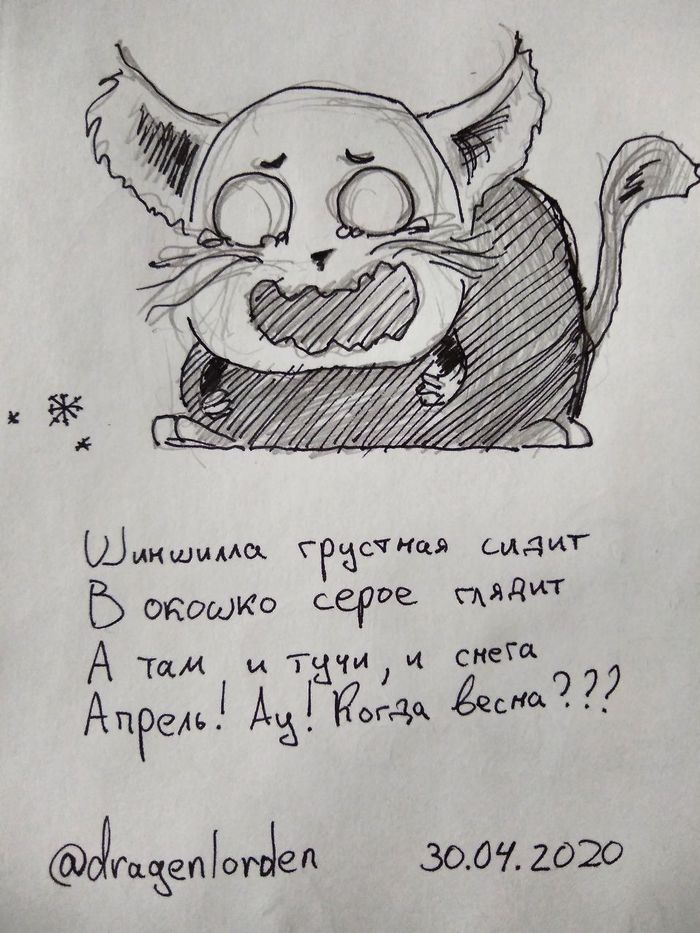 Шиншилла грустная сидит
В окошко серое глядит
А там и тучи, и снега
Апрель! Ау! Когда весна???
@dragenlorden
30.04.2020